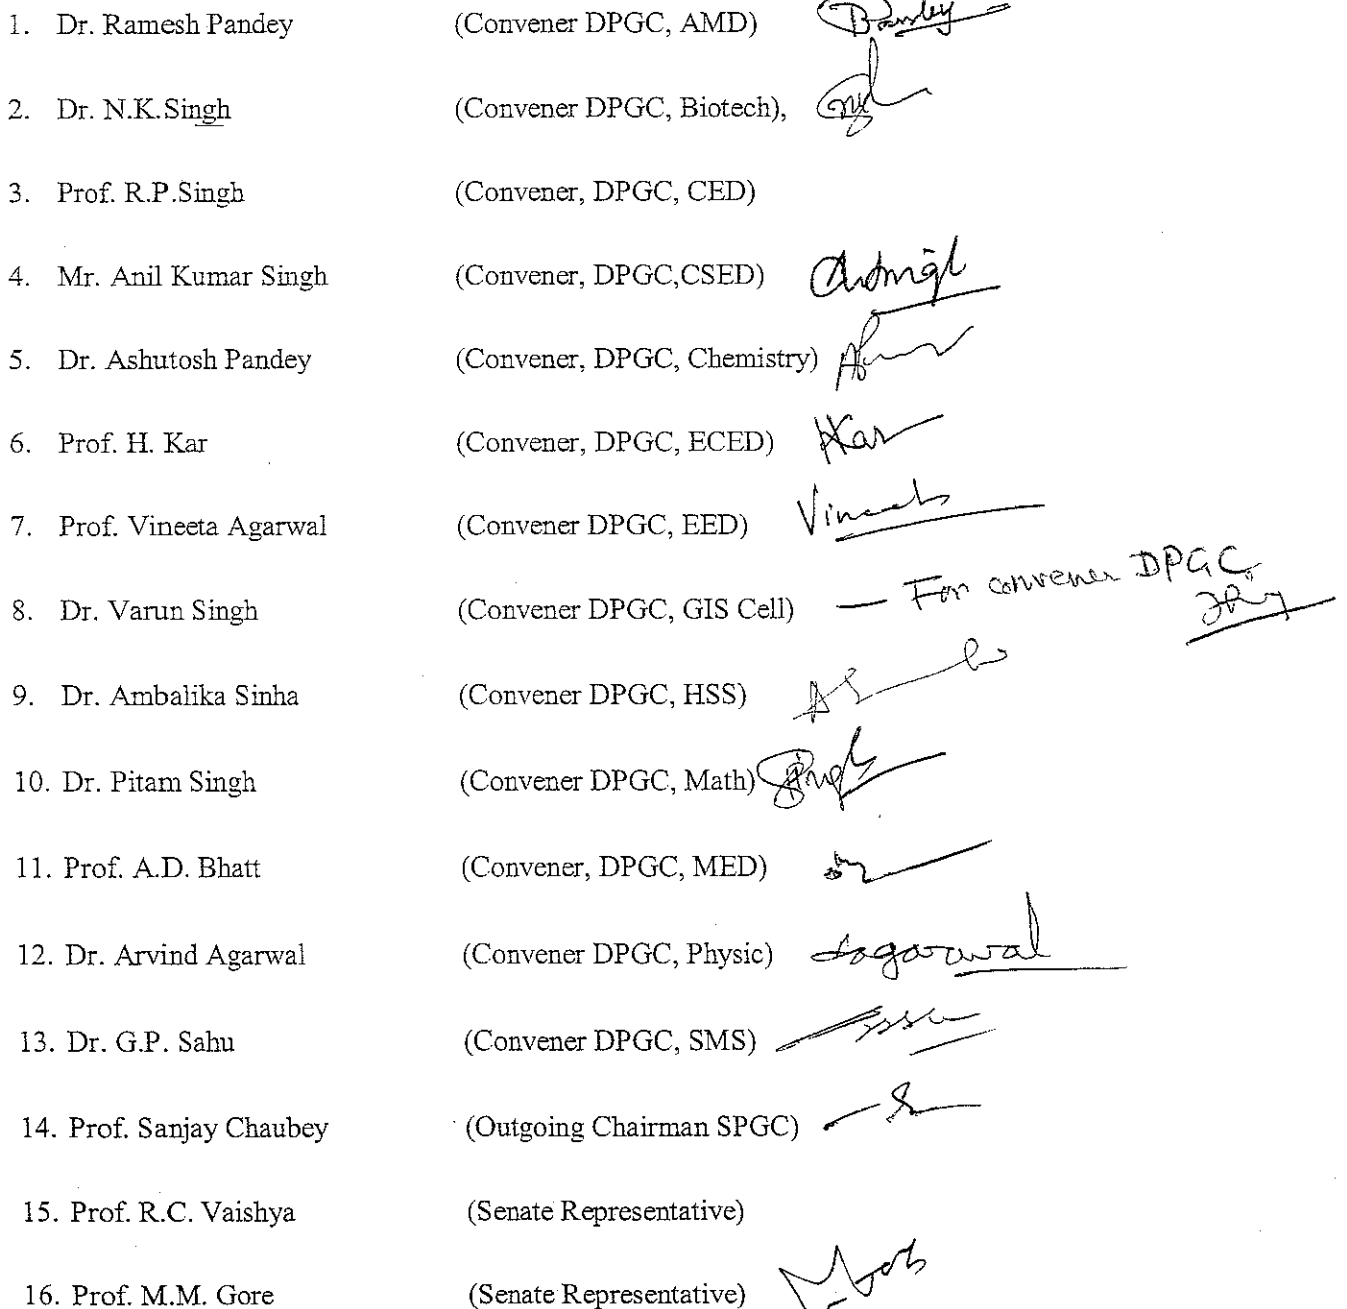 1. Dr. Ramesh Pandey (Convener DPGC, AMD) Pandey
2. Dr. N.K.Singh (Convener DPGC, Biotech),
3. Prof. R.P.Singh (Convener, DPGC, CED)
4. Mr. Anil Kumar Singh (Convener, DPGC,CSED)
5. Dr. Ashutosh Pandey (Convener, DPGC, Chemistry)
6. Prof. H. Kar (Convener, DPGC, ECED) HKar
7. Prof. Vineeta Agarwal (Convener DPGC, EED) Vineeta
8. Dr. Varun Singh (Convener DPGC, GIS Cell) — For convener DPGC,
9. Dr. Ambalika Sinha (Convener DPGC, HSS)
10. Dr. Pitam Singh (Convener DPGC, Math) Singh
11. Prof. A.D. Bhatt (Convener, DPGC, MED)
12. Dr. Arvind Agarwal (Convener DPGC, Physic) Aagarwal
13. Dr. G.P. Sahu (Convener DPGC, SMS)
14. Prof. Sanjay Chaubey (Outgoing Chairman SPGC)
15. Prof. R.C. Vaishya (Senate Representative)
16. Prof. M.M. Gore (Senate Representative)